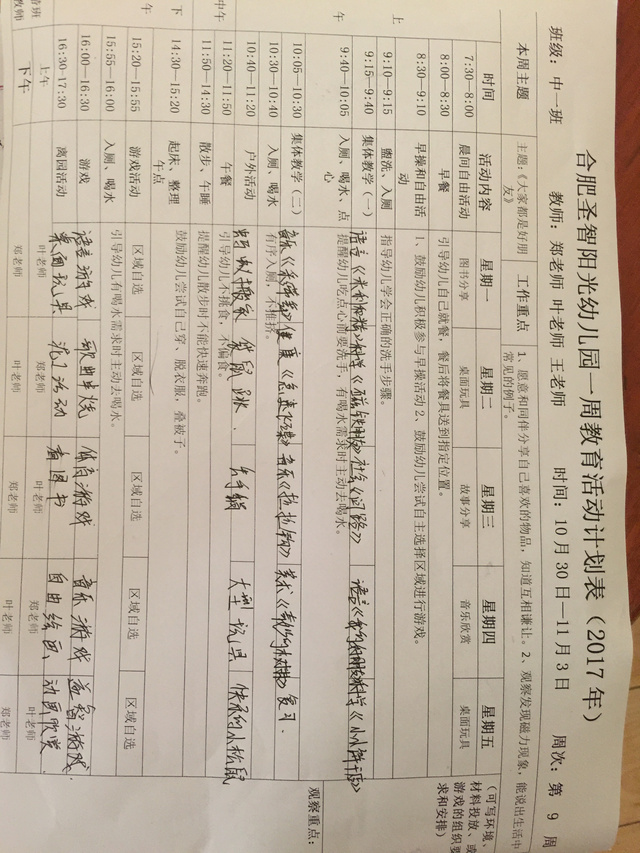 合肥圣智阳光幼儿园一周教育活动计划表（2017 年）
班级：中一班 教师：郑老师 叶老师 王老师 时间：10 月 30 日—11 月 3 日 周次：第 9 周
本周主题 主题：《大家都是好朋友》 工作重点 1、愿意和同伴分享自己喜欢的物品，知道互相谦让。2、观察发现磁力现象，能说出生活中常见的例子。
时间 活动内容 星期一 星期二 星期三 星期四 星期五 （可写环境、材料投放、或游戏的组织要求和安排）
7:30—8:00 晨间自由活动 图书分享 桌面玩具 故事分享 音乐欣赏 桌面玩具
8:00—8:30 早餐 引导幼儿自己就餐，餐后将餐具送到指定位置。
8:30—9:10 早操和自由活动 1、鼓励幼儿积极参与早操活动 2、鼓励幼儿尝试自主选择区域进行游戏。
上
9:10—9:15 盥洗、入厕 指导幼儿学会正确的洗手步骤。
9:15—9:40 集体教学（一） 语言 科学 社会《问路》 语言 科学
午
9:40—10:05 入厕、喝水、点心 提醒幼儿吃点心前要洗手，有喝水需求时主动去喝水。
10:05—10:30 集体教学（二） 健康 音乐《拉拉钩》 美术 复习.
观察重点：
10:30—10:40 入厕、喝水 有序入厕，不推挤。
10:40—11:20 户外活动 蚂蚁搬家 袋鼠跳. 丢手绢 大型玩具 快乐的小松鼠
11:20—11:50 午餐 引导幼儿不挑食，不偏食。
中午
11:50—14:30 散步、午睡 提醒幼儿散步时不能快速奔跑。
14:30—15:20 起床、整理 午点 鼓励幼儿尝试自己穿、脱衣服，叠被子。
下
午
15:20—15:55 游戏活动 区域自选 区域自选 区域自选 区域自选 区域自选
15:55—16:00 入厕、喝水 引导幼儿有喝水需求时主动去喝水。
16:00—16:30 游戏 语言游戏 歌曲串烧 体育游戏 音乐游戏 益智游戏
16:30-17:30 离园活动 桌面玩具 泥工活动 看图书 自由绘画 动画欣赏
上午 叶老师 郑老师 叶老师 郑老师 叶老师
下午 郑老师 叶老师 郑老师 叶老师 郑老师